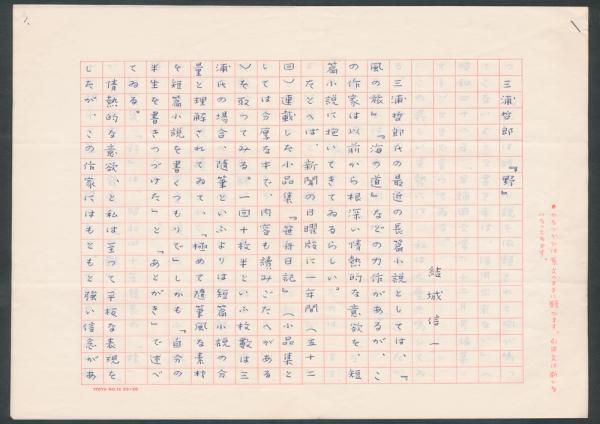 三浦哲郎『野』
結城信一
三浦哲郎氏の最近の長篇小説としては、『
風の旅』『海の道』などの力作があるが、こ
の作家は以前から根深い情熱的な意欲を、短
篇小説に抱いてきてゐるらしい。
たとへば、新聞の日曜版に一年間(五十二
回)連載した小品集『笹舟日記』(小品集と
しては分厚な本で、内容も読みごたへがある
)を取つてみる。一回十枚半といふ枚数は三
浦氏の場合、随筆といふよりは短篇小説の分
量と理解されてゐて、「極めて随筆風な素材
を短篇小説を書くつもりで」しかも「自分の
半生を書きつづけた」と「あとがき」で述べ
てゐる。
情熱的な意欲、と私は至つて平板な表現を
したが、この作家にはもともと強い信念があ